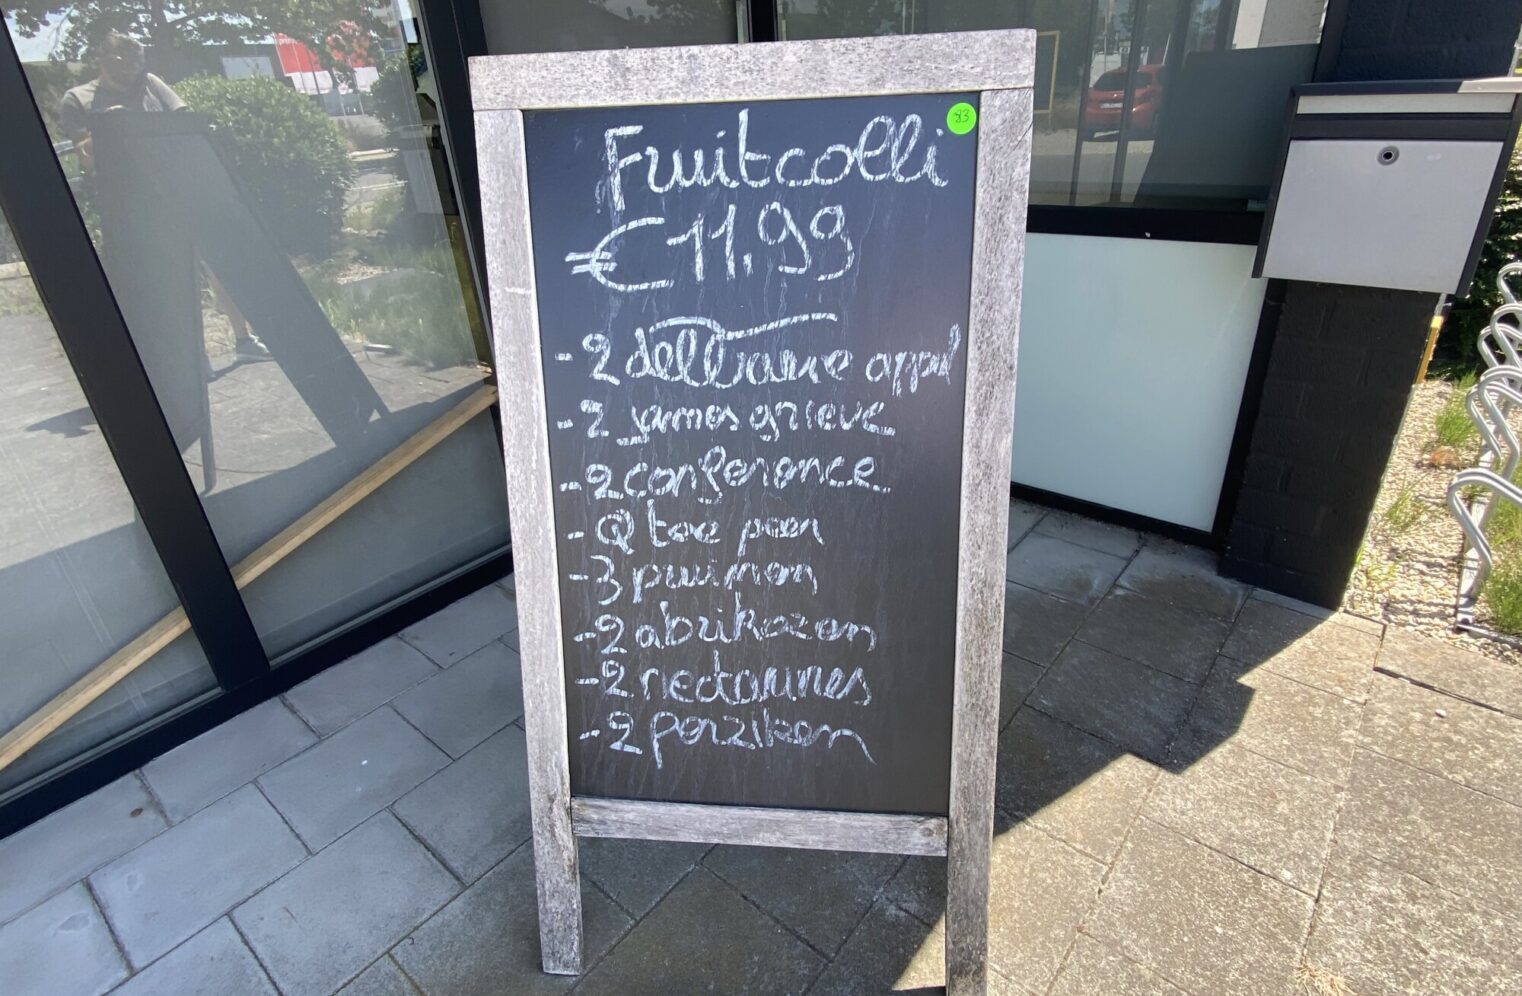 Fruitcolli
83
€11.99
- 2 delbare appel
- 2 james grieve
- 2 conference
- 2 toe peer
- 3 pruimen
- 2 abrikozen
- 2 nectarines
- 2 perziken